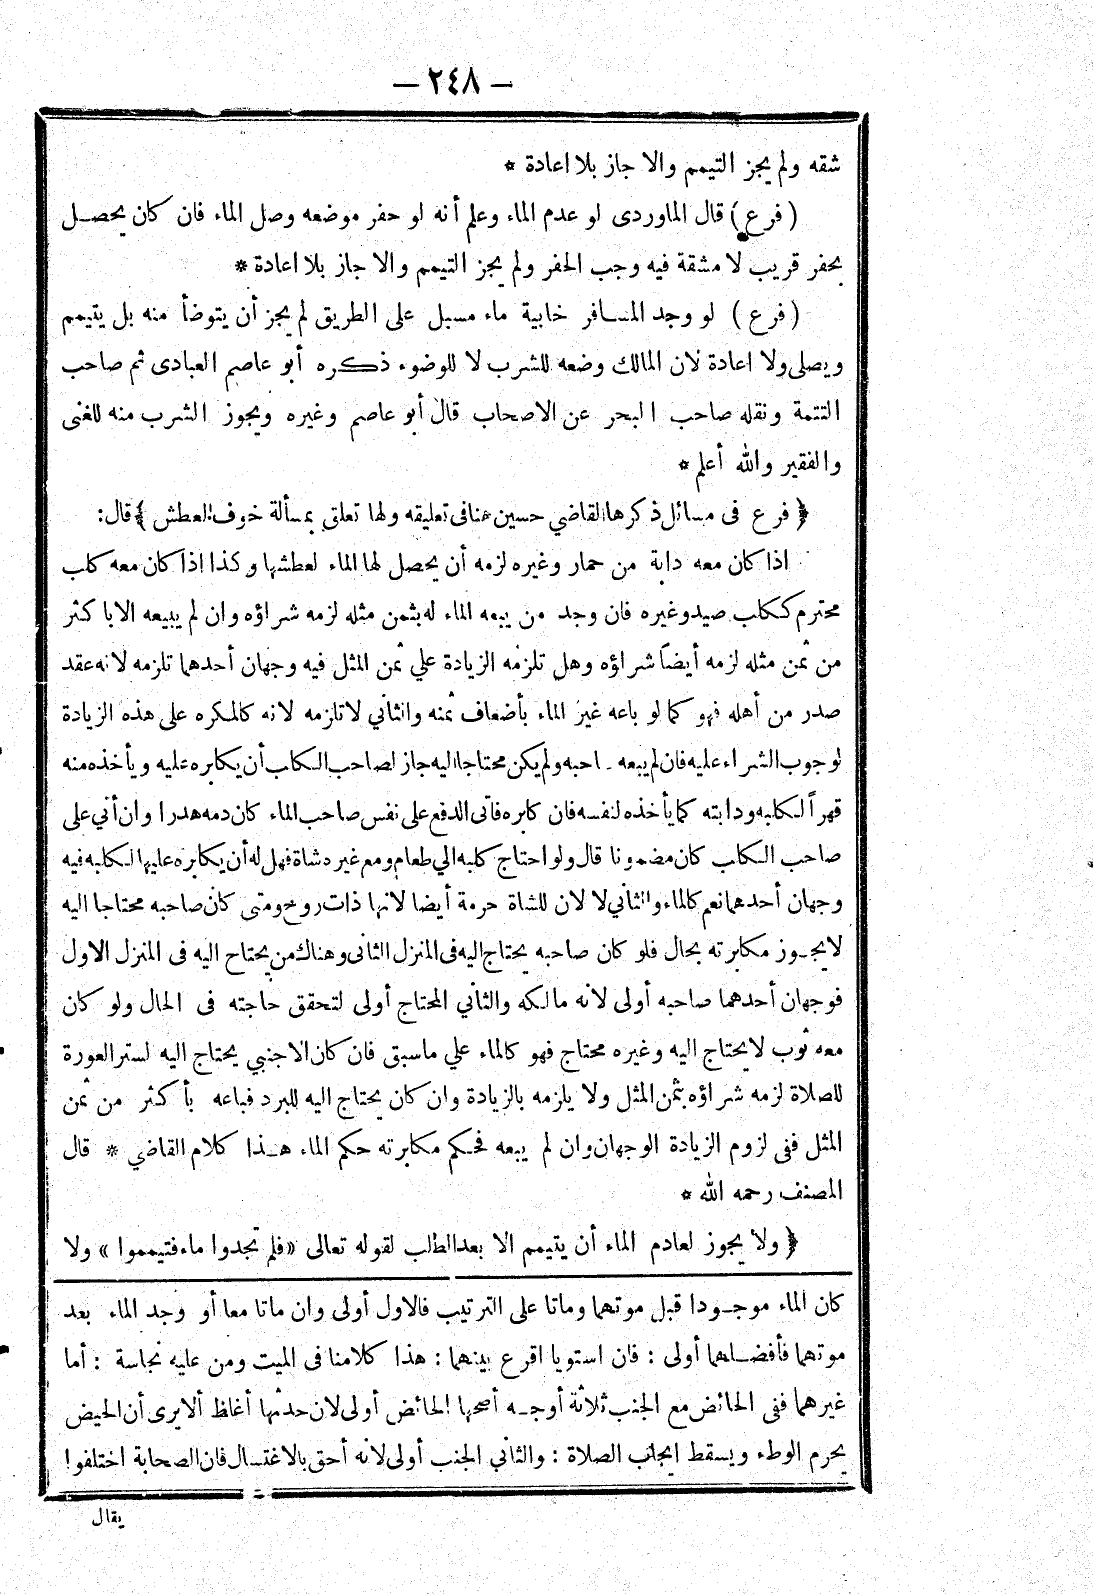 — ٢٤٨ —
شقه ولم يجز التيمم والا جاز بلا اعادة *
( فرع ) قال الماوردى لو عدم الماء وعلم أنه لو حفر موضعه وصل الماء فان كان يحصـل
بحفر قريب لا مشقة فيه وجب الحفر ولم يجز التيمم والا جاز بلا اعادة *
( فرع ) لو وجد المسـافر خابية ماء مسبل على الطريق لم يجز أن يتوضأ منه بل يتيمم
ويصلى ولا اعادة لان المالك وضعه للشرب لا للوضوء ذكره أبو عاصم العبادى ثم صاحب
التتمة ونقله صاحب البحر عن الاصحاب قال أبو عاصم وغيره ويجوز الشرب منه للغنى
والفقير والله أعلم *
﴿ فرع فى مسائل ذكرها القاضي حسين هنا فى تعليقه ولها تعلق بمسألة خوف العطش ﴾ قال:
اذا كان معه دابة من حمار وغيره لزمه أن يحصل لها الماء لعطشها وكذا اذا كان معه كلب
محترم ككلب صيد وغيره فان وجد من يبيعه الماء له بثمن مثله لزمه شراؤه وان لم يبيعه الا باكثر
من ثمن مثله لزمه أيضاً شراؤه وهل تلزمه الزيادة علي ثمن المثل فيه وجهان أحدهما تلزمه لانه عقد
صدر من أهله فهو كما لو باعه غير الماء بأضعاف ثمنه والثاني لا تلزمه لانه كالمكره على هذه الزيادة
لوجوب الشراء عليه فان لم يبعه صاحبه ولم يكن محتاجا اليه جاز لصاحب الكلب أن يكابره عليه ويأخذه منه
قهراً لكلبه ودابته كما يأخذه لنفسه فان كابره فأتى الدفع على نفس صاحب الماء كان دمه هدرا وان أتي على
صاحب الكلب كان مضمونا قال ولو احتاج كلبه الي طعام ومع غيره شاة فهل له أن يكابره عليها لكلبه فيه
وجهان أحدهما نعم كالماء والثاني لا لان للشاة حرمة أيضا لانها ذات روح ومتى كان صاحبه محتاجا اليه
لا يجـوز مكابرته بحال فلو كان صاحبه يحتاج اليه فى المنزل الثانى وهناك من يحتاح اليه فى المنزل الاول
فوجهان أحدهما صاحبه أولى لانه مالكه والثاني المحتاج أولى لتحقق حاجته فى الحال ولو كان
معه ثوب لا يحتاج اليه وغيره محتاج فهو كالماء علي ما سبق فان كان الاجنبي يحتاج اليه لستر العورة
للصلاة لزمه شراؤه بثمن المثل ولا يلزمه بالزيادة وان كان يحتاج اليه للبرد فباعه بأكثر من ثمن
المثل ففى لزوم الزيادة الوجهان وان لم يبعه فحكم مكابرته حكم الماء هـذا كلام القاضي * قال
المصنف رحمه الله *
﴿ ولا يجوز لعادم الماء أن يتيمم الا بعد الطلب لقوله تعالى «فلم تجدوا ماء فتيمموا» ولا
كان الماء موجـودا قبل موتهما وماتا على الترتيب فالاول أولى وان ماتا معا أو وجد الماء بعد
موتهما فأفضـلهما أولى : فان استويا اقرع بينهما : هذا كلامنا فى الميت ومن عليه نجاسة : أما
غيرهما ففى الحائض مع الجنب ثلاثة أوجـه أصحها الحائض أولى لان حدثها أغلظ ألا يرى أن الحيض
يحرم الوطء ويسقط ايجاب الصلاة : والثاني الجنب أولى لانه أحق بالاغتسال فان الصحابة اختلفوا
يقال